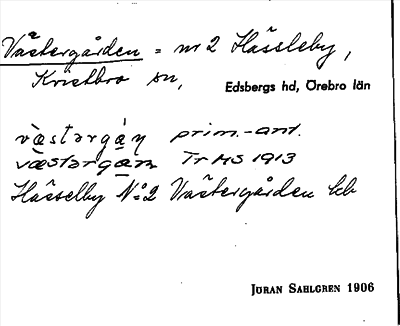 Västergården = nr 2 Hässleby,
Knistbro sn, Edsbergs hd, Örebro län
væ̀stərgán prim.-ant.
væ̀stərgan Tr HS 1913
Hässelby N:o 2 Västergården kb
JÖRAN SAHLGREN 1906